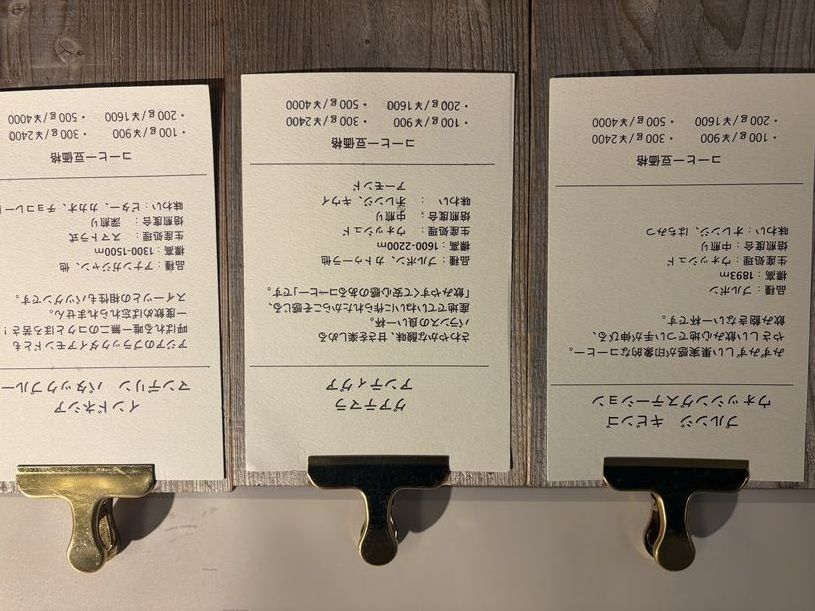 ブルンジ　キビンゴ
ウォッシングステーション
みずみずしい果実感が印象的なコーヒー。
やさしい飲み心地でつい手が伸びる、
飲み飽きない一杯です。
品種：ブルボン
標高：1893m
生産処理：ウォッシュド
焙煎度合：中煎り
味わい：オレンジ、はちみつ
コーヒー豆価格
・100g/¥900 ・300g/¥2400
・200g/¥1600 ・500g/¥4000
グアテマラ
アンティグア
さわやかな酸味、甘さを楽しめる
バランスの良い一杯。
産地でていねいに作られたからこそ感じる、
「飲みやすくて安心感のあるコーヒー」です。
品種：ブルボン、カトゥーラ他
標高：1600-2200m
生産処理：ウォッシュド
焙煎度合：中煎り
味わい：オレンジ、キウイ
アーモンド
コーヒー豆価格
・100g/¥900 ・300g/¥2400
・200g/¥1600 ・500g/¥4000
インドネシア
マンデリン　バタックブルー
アジアのブラックダイアモンドとも
呼ばれる唯一無二のコクとほろ苦さ！
一度飲めば忘れられません。
スイーツとの相性もバツグンです。
品種：アナンガジャン、他
標高：1300-1500m
生産処理：スマトラ式
焙煎度合：深煎り
味わい：ビター、カカオ、チョコレー
コーヒー豆価格
・100g/¥900 ・300g/¥2400
・200g/¥1600 ・500g/¥4000